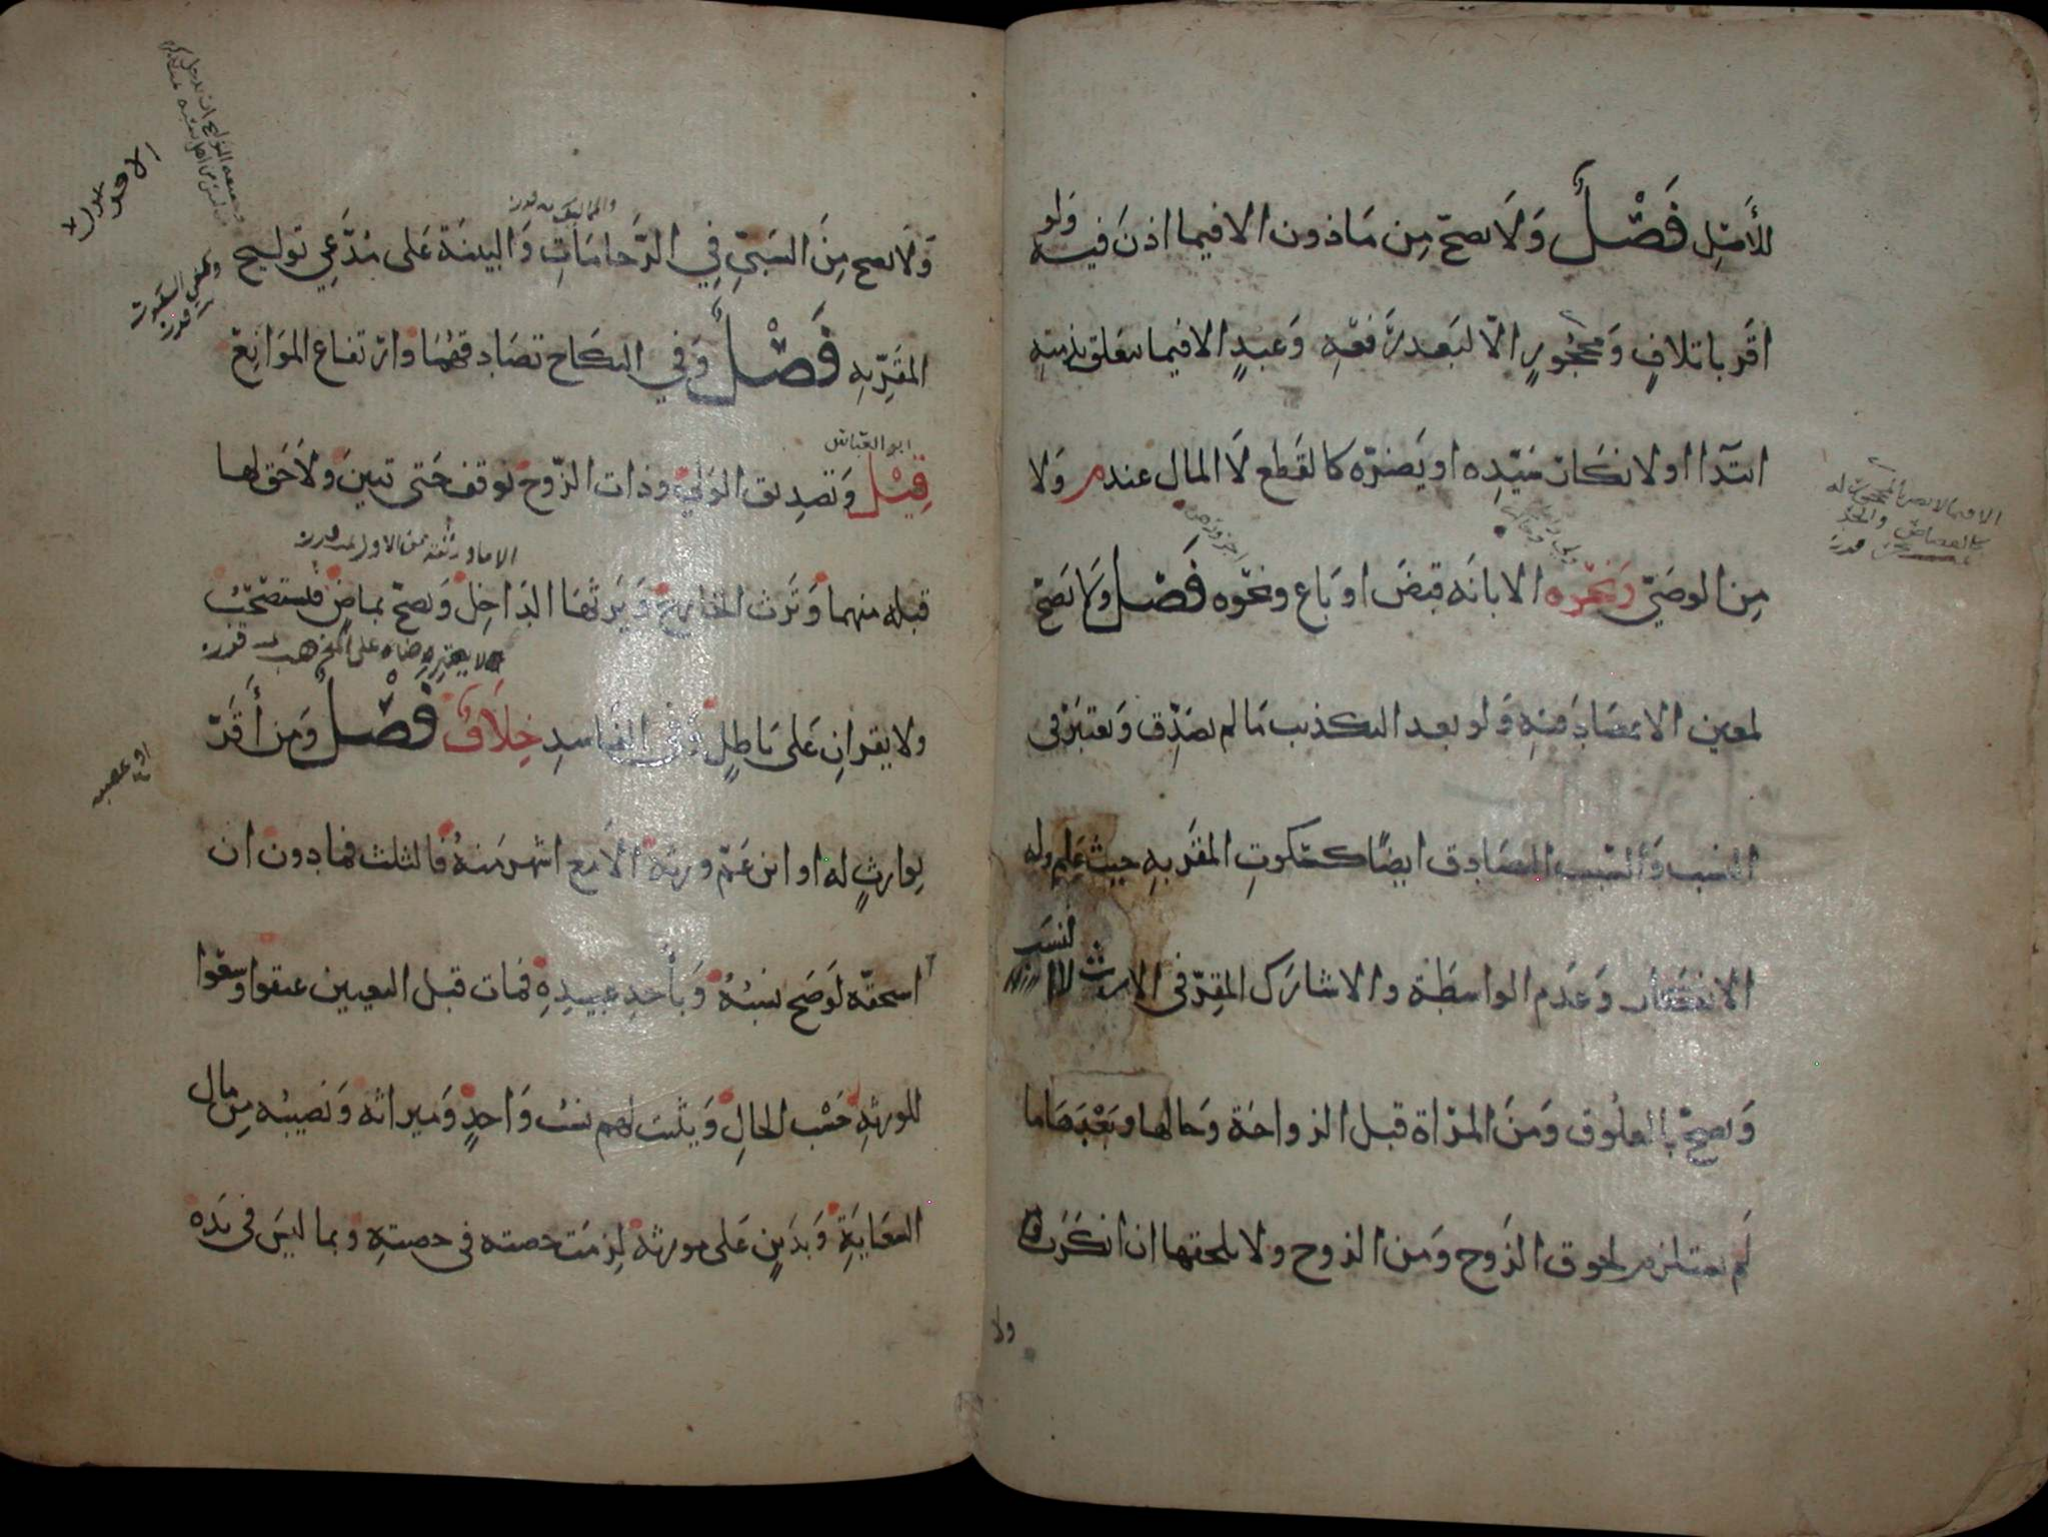 للأصل فَصْلٌ وَلَا يصح مِن مَاذون الا فيما اذنَ فيه وَلو
اقَر باتلافٍ وَمحجُورٍ الّا لبَعد رَفعِهِ وَعبدٍ الا فيما يتعَلق بذمته
ابتدَآا اولا نكَار سَيّدِه او يَضرّه كالقَطع لَا المال عند م وَلا
مِن الوصَيّ وَنحْوه الا بانَه قبضَ او بَاع ونحوه فَصْل وَلَا يَصَحّ
لمعين الا بمصَادَقتهِ وَلو بعد التكذيب مَا لم يصَدِّق وَيعتبَر في
النسَب وَالسّبب التصَادق ايضًا كسكوتِ المقَر بهِ حيث عَلِم وله
الانكَار وَعَدَم الواسطَة والا شارَك المقِرّ في الارث لا النسَب
وَيصحّ بالعلُوق وَمنَ المرْاة قبل الزواجَة وَحالها وبَعْدهَا ما
لَم يستلزم لحوق الزَوج وَمن الزوج ولا يلحقها ان انكَرَت
الا فيما لا يضر المحجور له
كالقصاص والحد
ولا
وَلَا يصح مِنَ السَبيّ فِي الرّحَامَاتِ وَالبينَة عَلى مُدَّعي توليج
والمماليك
المقَرِّبهِ فَصْلٌ وَفي النكَاح تصَادقهُمَا وارتفاع الموَانِعْ
ابو العَبّاس
قِيْلَ وَتصدِيق الوَليّ وذات الزّوج توقف حَتى تبينَ وَلاحَق لهَا
قبله منهما وَتَرث الخارج وَيَرثهَا الدَاخِل وَيصحّ بماضٍ فيستصْحَبُ
ولا يقرانِ عَلى بَاطِلٍ وَفي الفَاسدِ خِلَافٌ فَصْلٌ وَمَن أَقَرّ
بِوارثٍ له او ابن عَمّ ورثهُ الا مع اشهر منهُ فالثلث فما دون ان
استحقّه لَو صَح نسبُهُ وَبأحَدِ عبيدِهِ فمات قبل التعيين عتقوا وسعَوا
للورثهِ حَسْب الحَالِ وَيثبت لهم نسب وَاحدٍ وَميراثه وَنصَيبُه مِن مال
السِّعَايَةِ وَبدَينٍ عَلى مورثه لزمَت حصته في حصتهِ وبما ليسَ في يَده
او عصبه